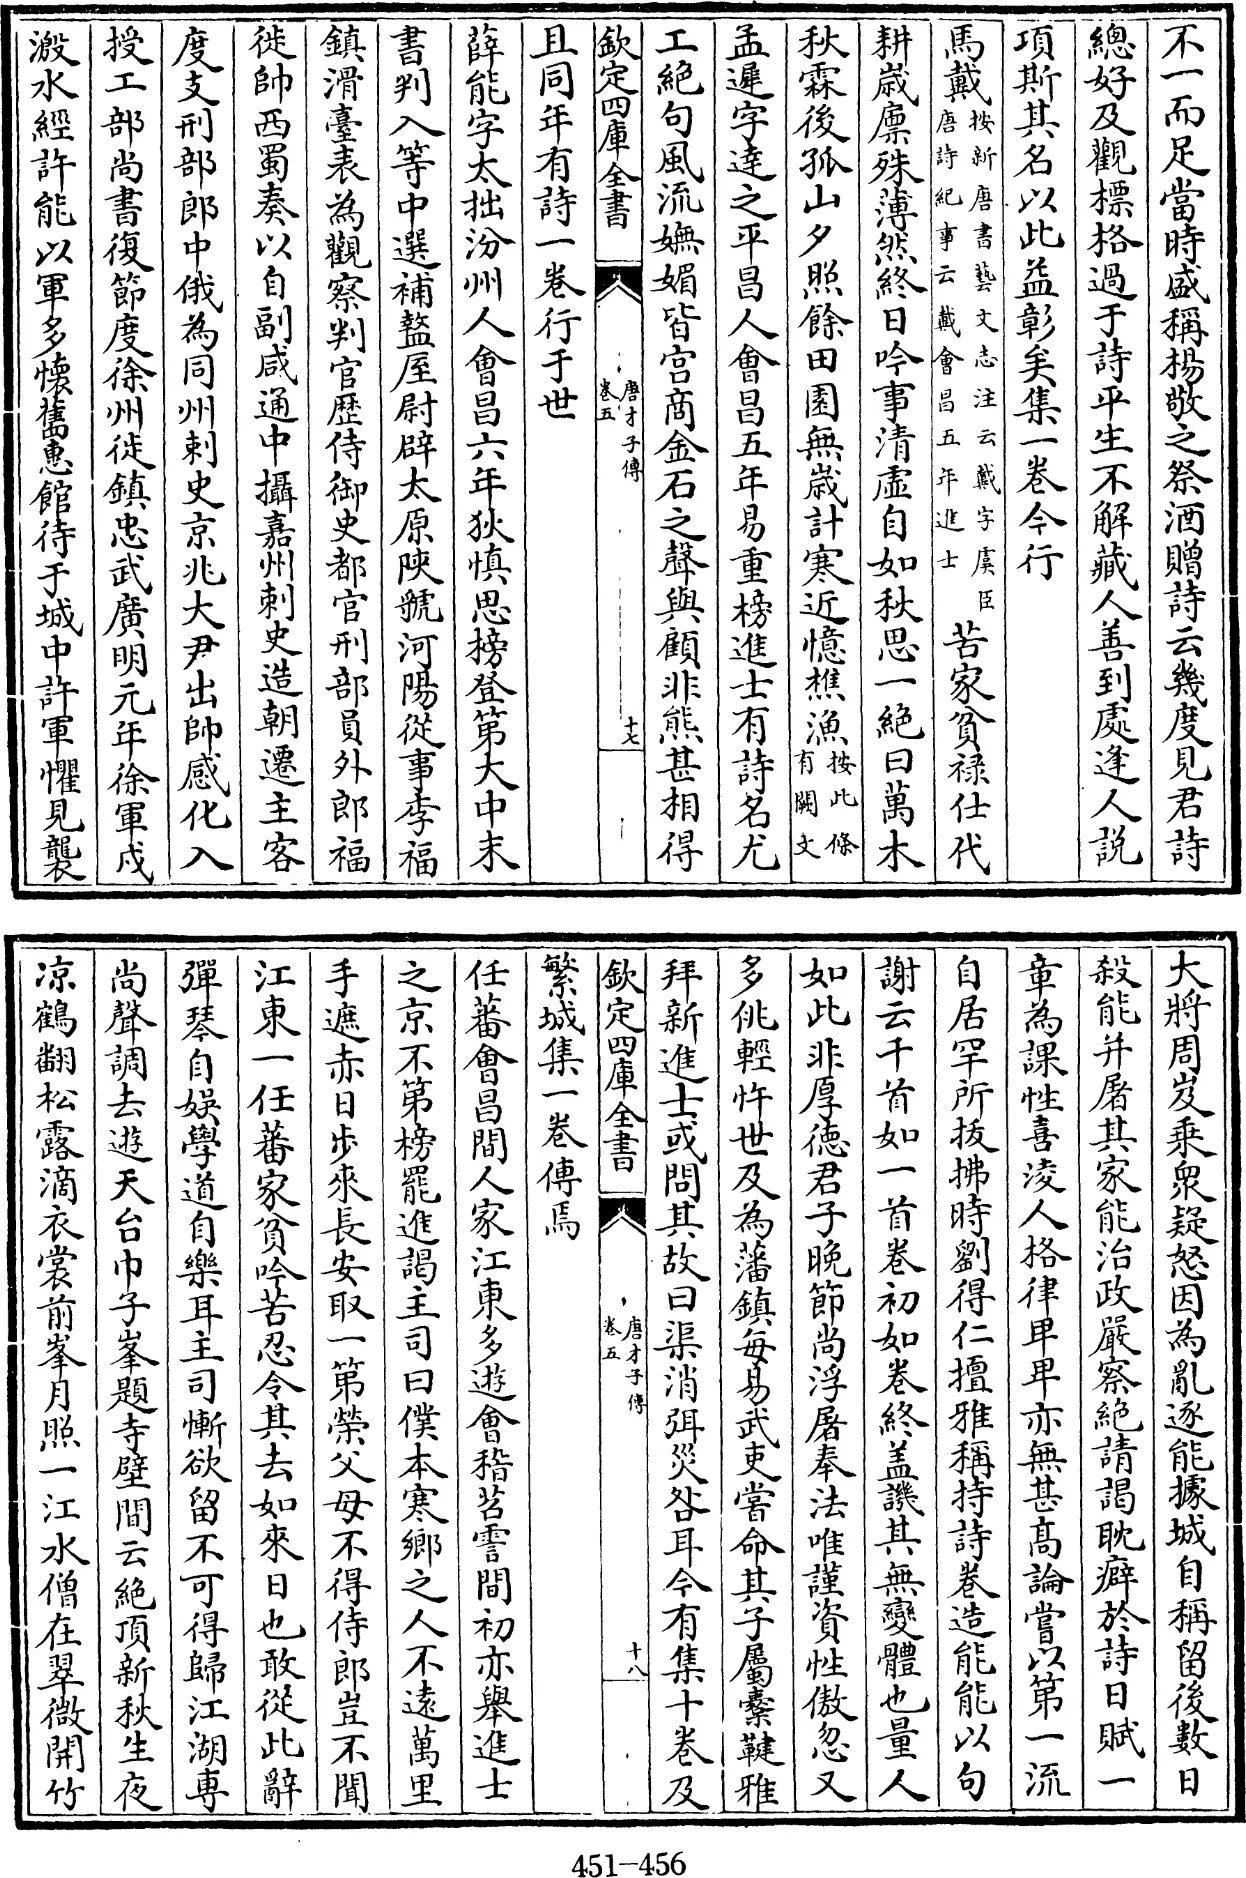 不一而足當時盛稱楊敬之祭酒贈詩云幾度見君詩
總好及觀標格過于詩平生不解藏人善到處逢人説
項斯其名以此益彰矣集一卷今行
馬戴按新唐書藝文志注云戴字虞臣唐詩紀事云戴會昌五年進士苦家貧禄仕代
耕歳廪殊薄然終日吟事清虛自如秋思一絕曰萬木
秋霖後孤山夕照餘田園無歳計寒近憶樵漁按此條有闕文
孟遲字達之平昌人會昌五年易重榜進士有詩名尤
工絕句風流嫵媚皆宫商金石之聲與顧非熊甚相得
欽定四庫全書
唐才子傳
卷五
十七
且同年有詩一卷行于世
薛能字太拙汾州人會昌六年狄慎思榜登第大中末
書判入等中選補盩厔尉辟太原陝虢河陽從事李福
鎮滑臺表為觀察判官歴侍御史都官刑部員外郎福
徙帥西蜀奏以自副咸通中攝嘉州刺史造朝遷主客
度支刑部郎中俄為同州刺史京兆大尹出帥感化入
授工部尚書復節度徐州徙鎮忠武廣明元年徐軍戍
溵水經許能以軍多懷舊惠館待于城中許軍懼見襲
大將周岌乘衆疑怒因為亂逐能據城自稱留後數日
殺能并屠其家能治政嚴察絕請謁耽癖於詩日賦一
章為課性喜淩人格律卑卑亦無甚髙論嘗以第一流
自居罕所拔拂時劉得仁擅雅稱持詩卷造能能以句
謝云千首如一首卷初如卷終盖譏其無變體也量人
如此非厚德君子晚節尚浮屠奉法唯謹資性傲忽又
多佻輕忤世及為藩鎮每易武吏嘗命其子屬櫜鞬雅
拜新進士或問其故曰渠消弭災咎耳今有集十卷及
欽定四庫全書
唐才子傳
卷五
十八
繁城集一卷傳焉
任蕃會昌間人家江東多遊會稽苕霅間初亦舉進士
之京不第榜罷進謁主司曰僕本寒鄉之人不遠萬里
手遮赤日步來長安取一第榮父母不得侍郎豈不聞
江東一任蕃家貧吟苦忍令其去如來日也敢從此辭
彈琴自娱學道自樂耳主司慚欲留不可得歸江湖專
尚聲調去遊天台巾子峯題寺壁間云絕頂新秋生夜
凉鶴翻松露滴衣裳前峯月照一江水僧在翠微開竹
451—456